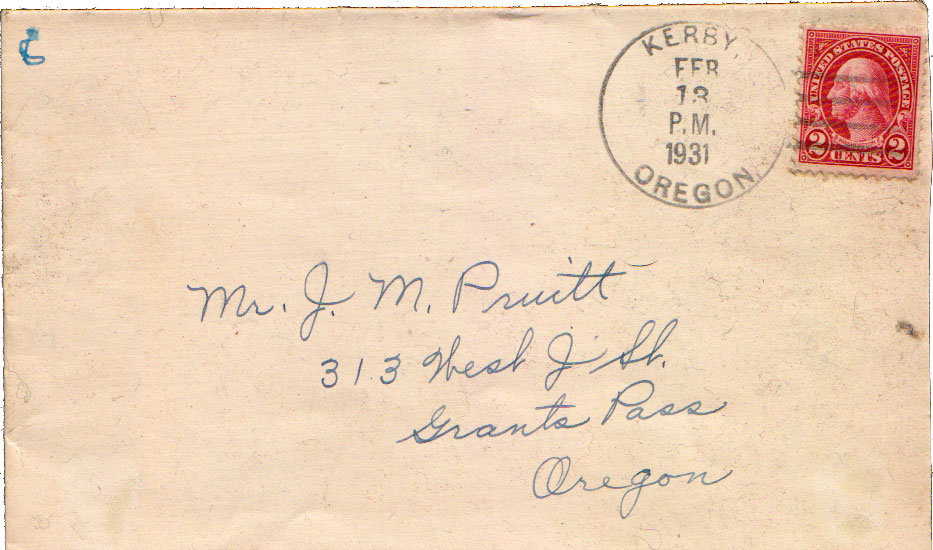 KERBY,
FEB
13
P.M.
1931
OREGON.
UNITED STATES POSTAGE
2 CENTS 2
Mr. J. M. Pruitt
313 West J St.
Grants Pass
Oregon